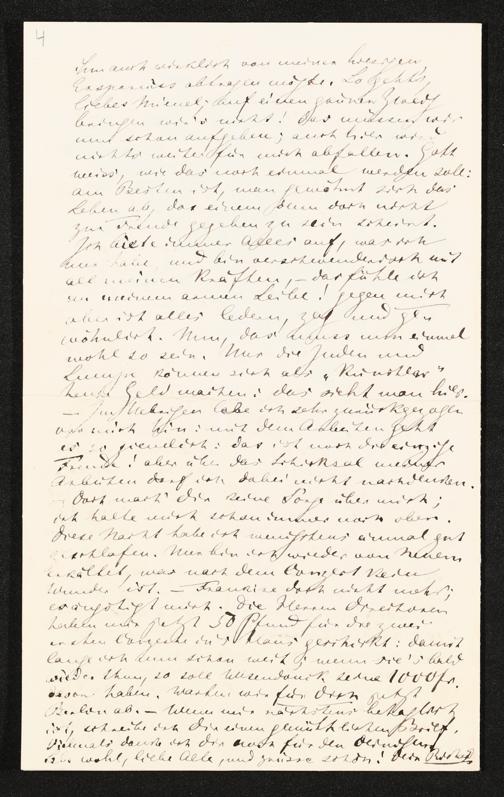 4
Ihm auch wirklich von meiner hiesigen
Ersparniss abtragen möge. So geht's,
liebes Minel; auf einen grünen Zweig
bringen wir's nicht! Das müssen wir
nun schon aufgeben; auch hier wird
nichts weiter für mich abfallen. Gott
weiss, wie das noch einmal werden soll:
am Besten ist, man gewöhnt sich das
Leben ab, das einem denn doch nicht
zur Freude gegeben zu sein scheint.
Ich biete immer Alles auf, was ich
nur habe, und bin verschwenderisch mit
all meinen Kräften, – das fühle ich
an meinem armen Leibe! gegen mich
aber ist alles ledern, zäh und
. Nun, das muss nun einmal
wohl so sein. Nur die Juden und
Lumpe können sich als „Künstler"
heut' Geld machen: das sieht man hier.
– Im Uebrigen lebe ich sehr zurückgezogen
vor mich hin: mit dem Arbeiten geht
es so ziemlich: das ist noch die einzige
Freude! aber über das Schicksal meiner
Arbeiten darf ich dabei nicht nachdenken.
– Doch mach' Dir keine Sorge über mich;
ich halte mich schon immer noch oben.
Diese Nacht habe ich wenigstens einmal gut
geschlafen. Nur bin ich wieder von Neuem
erkältet, was nach dem Conzert kein
Wunder ist. – doch nicht mehr;
es ängstigt mich. Die Herren Directoren
haben mir jetzt 50 Pfund für die zwei
ersten Conzerte in's Haus geschickt: damit
lange ich nun schon weit; wenn sie's bald
wieder thun, so soll Wesendonck seine 1000 fr.
davon haben. Warten wir für Dich jetzt
Berlin ab. – Wenn mir nächstens behaglich
ist, schreibe ich Dir einen gemüthlichen Brief.
Diesmal danke ich Dir noch für den Deinigen
Lebe wohl, liebe Alte, und grüsse schön! Dein Richard